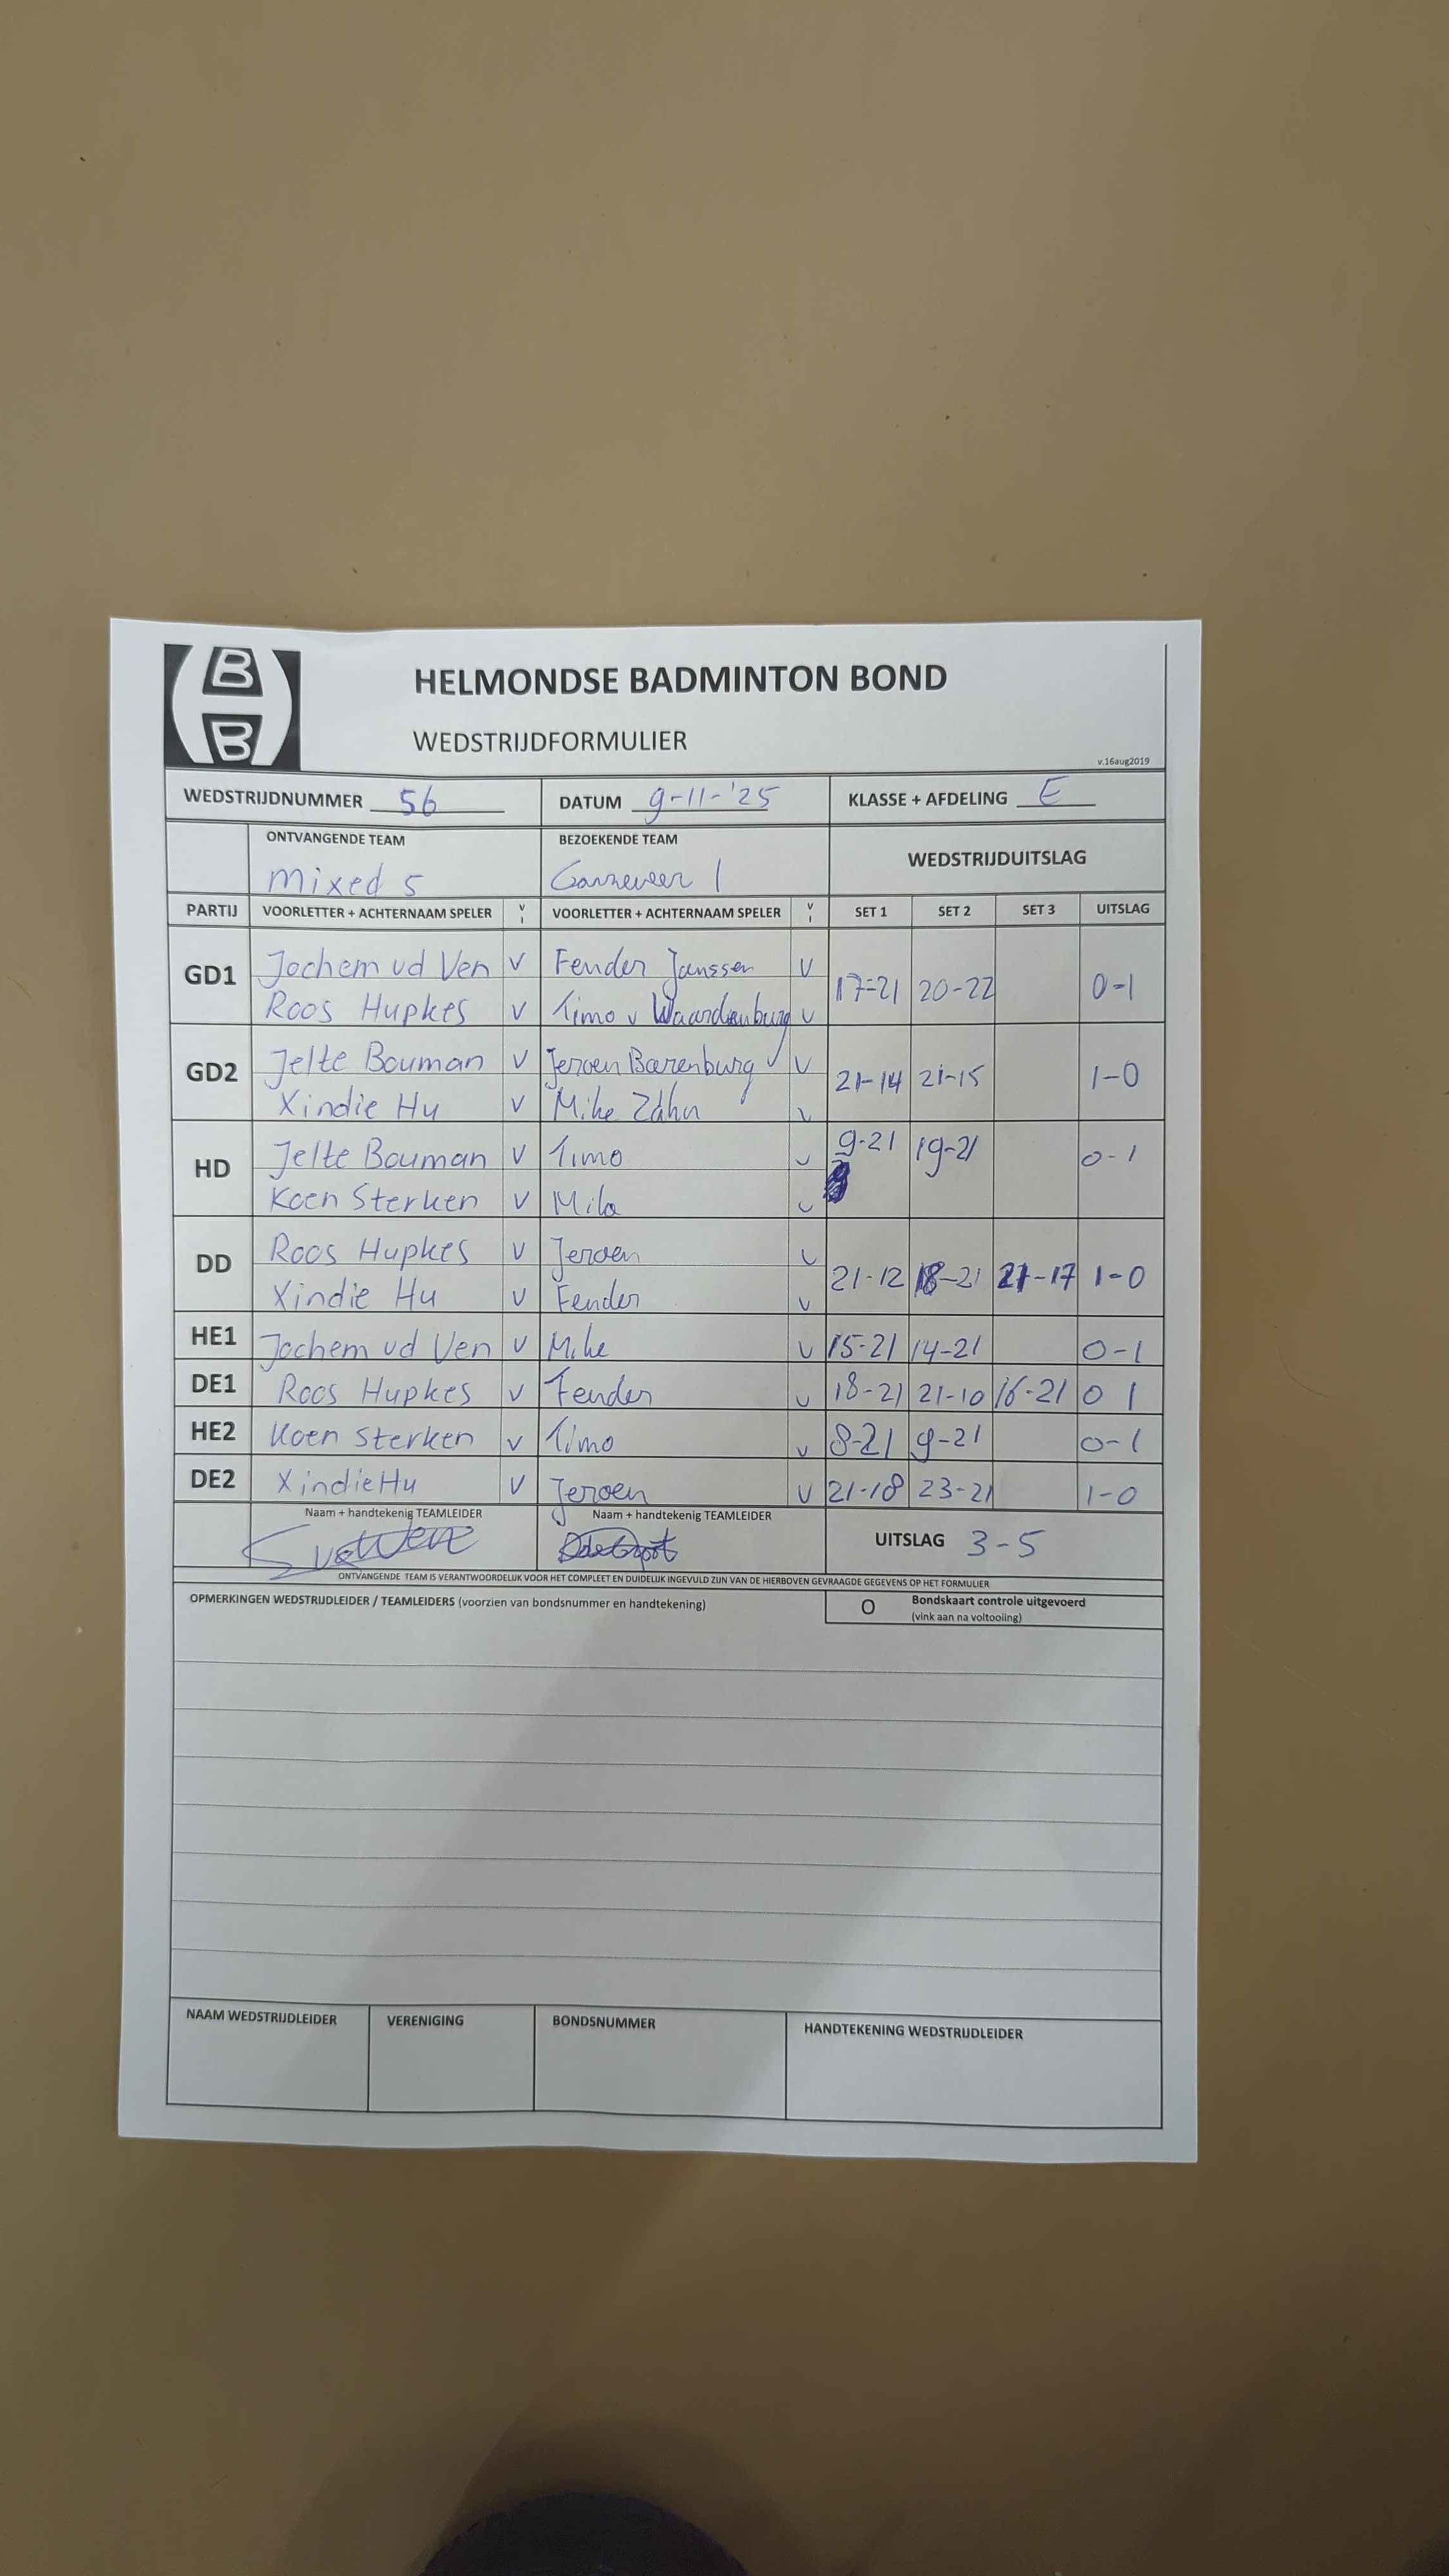 B
B
HELMONDSE BADMINTON BOND
WEDSTRIJDFORMULIER
v.16aug2019
WEDSTRIJDNUMMER 56 DATUM 9-11-'25 KLASSE + AFDELING E
ONTVANGENDE TEAM BEZOEKENDE TEAM WEDSTRIJDUITSLAG
Mixed 5 1
PARTIJ VOORLETTER + ACHTERNAAM SPELER V I VOORLETTER + ACHTERNAAM SPELER V I SET 1 SET 2 SET 3 UITSLAG
GD1 Jochem vd Ven V Fender Janssen V 17-21 20-22 0-1
Roos Hupkes V Timo v Waardenburg V
GD2 Jelte Bouman V Jeroen Barenburg V V 21-14 21-15 1-0
Xindie Hu V Mike Zahn V
HD Jelte Bouman V Timo V 9-21 19-21 0-1
Koen Sterken V V
DD Roos Hupkes V Jeroen V 21-12 18-21 21-17 1-0
Xindie Hu V Fender V
HE1 Jochem vd Ven V Mike V 15-21 14-21 0-1
DE1 Roos Hupkes V Fender V 18-21 21-10 16-21 0 1
HE2 Koen Sterken V Timo V 8-21 9-21 0-1
DE2 Xindie Hu V Jeroen V 21-18 23-21 1-0
Naam + handtekenig TEAMLEIDER Naam + handtekenig TEAMLEIDER
UITSLAG 3-5
ONTVANGENDE TEAM IS VERANTWOORDELIJK VOOR HET COMPLEET EN DUIDELIJK INGEVULD ZIJN VAN DE HIERBOVEN GEVRAAGDE GEGEVENS OP HET FORMULIER
OPMERKINGEN WEDSTRIJDLEIDER / TEAMLEIDERS (voorzien van bondsnummer en handtekening) O Bondskaart controle uitgevoerd
(vink aan na voltooiing)
NAAM WEDSTRIJDLEIDER VERENIGING BONDSNUMMER HANDTEKENING WEDSTRIJDLEIDER